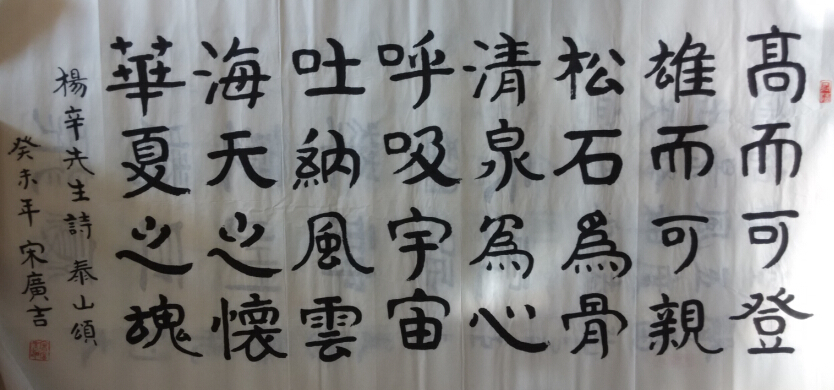 高而可登
雄而可親
松石爲骨
清泉爲心
呼吸宇宙
吐納風雲
海天之懷
華夏之魂
楊辛先生詩泰山頌
癸未年宋廣吉